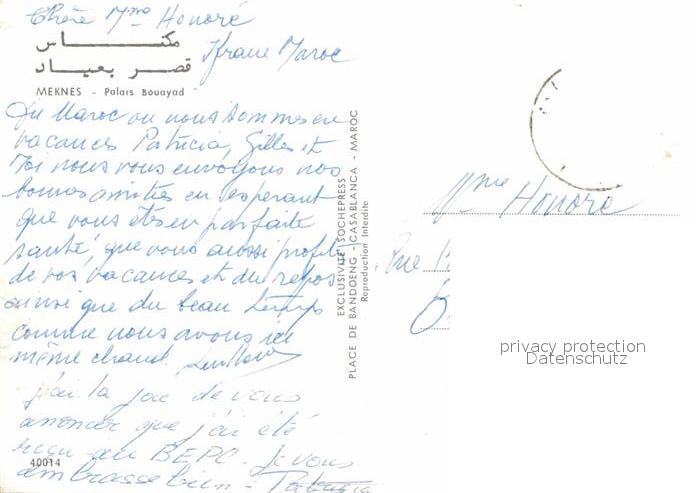 Chère Mme Honoré
مكناس
قصر بعياد
Ifrane Maroc
MEKNES - Palais Bouayad
Du Maroc ou nous sommes en
vacances Patricia, Gilles et
moi nous vous envoyons nos
bonnes amitiés en esperant
que vous êtes en parfaite
santé, que vous aussi profitez
de vos vacances et du repos
ainsi que du beau temps
comme nous avons ici
même chaud.
j'ai la joie de vous
anoncer que j'ai été
reçu au BEPC. Je vous
embrasse bien - Patricia
40014
EXCLUSIVITÉ SOCHEPRESS
PLACE DE BANDOENG - CASABLANCA - MAROC
Reproduction Interdite
Mme Honoré
Rue
privacy protection
Datenschutz